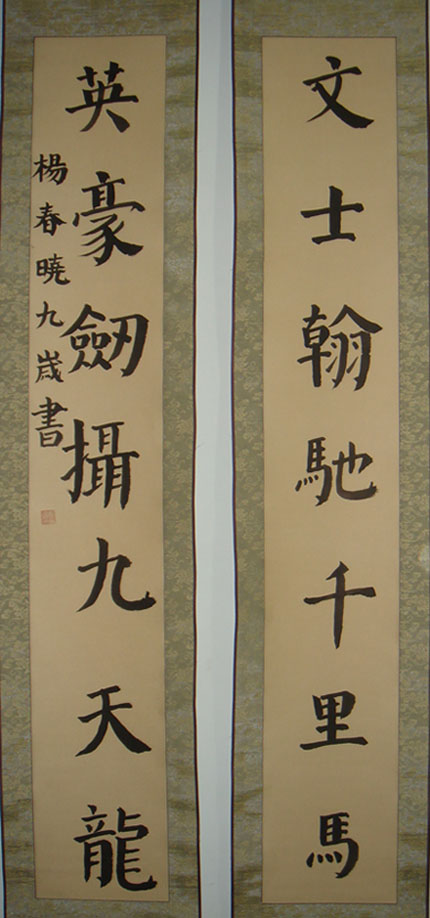 文士翰馳千里馬
英豪劒攝九天龍
楊春曉九歲書